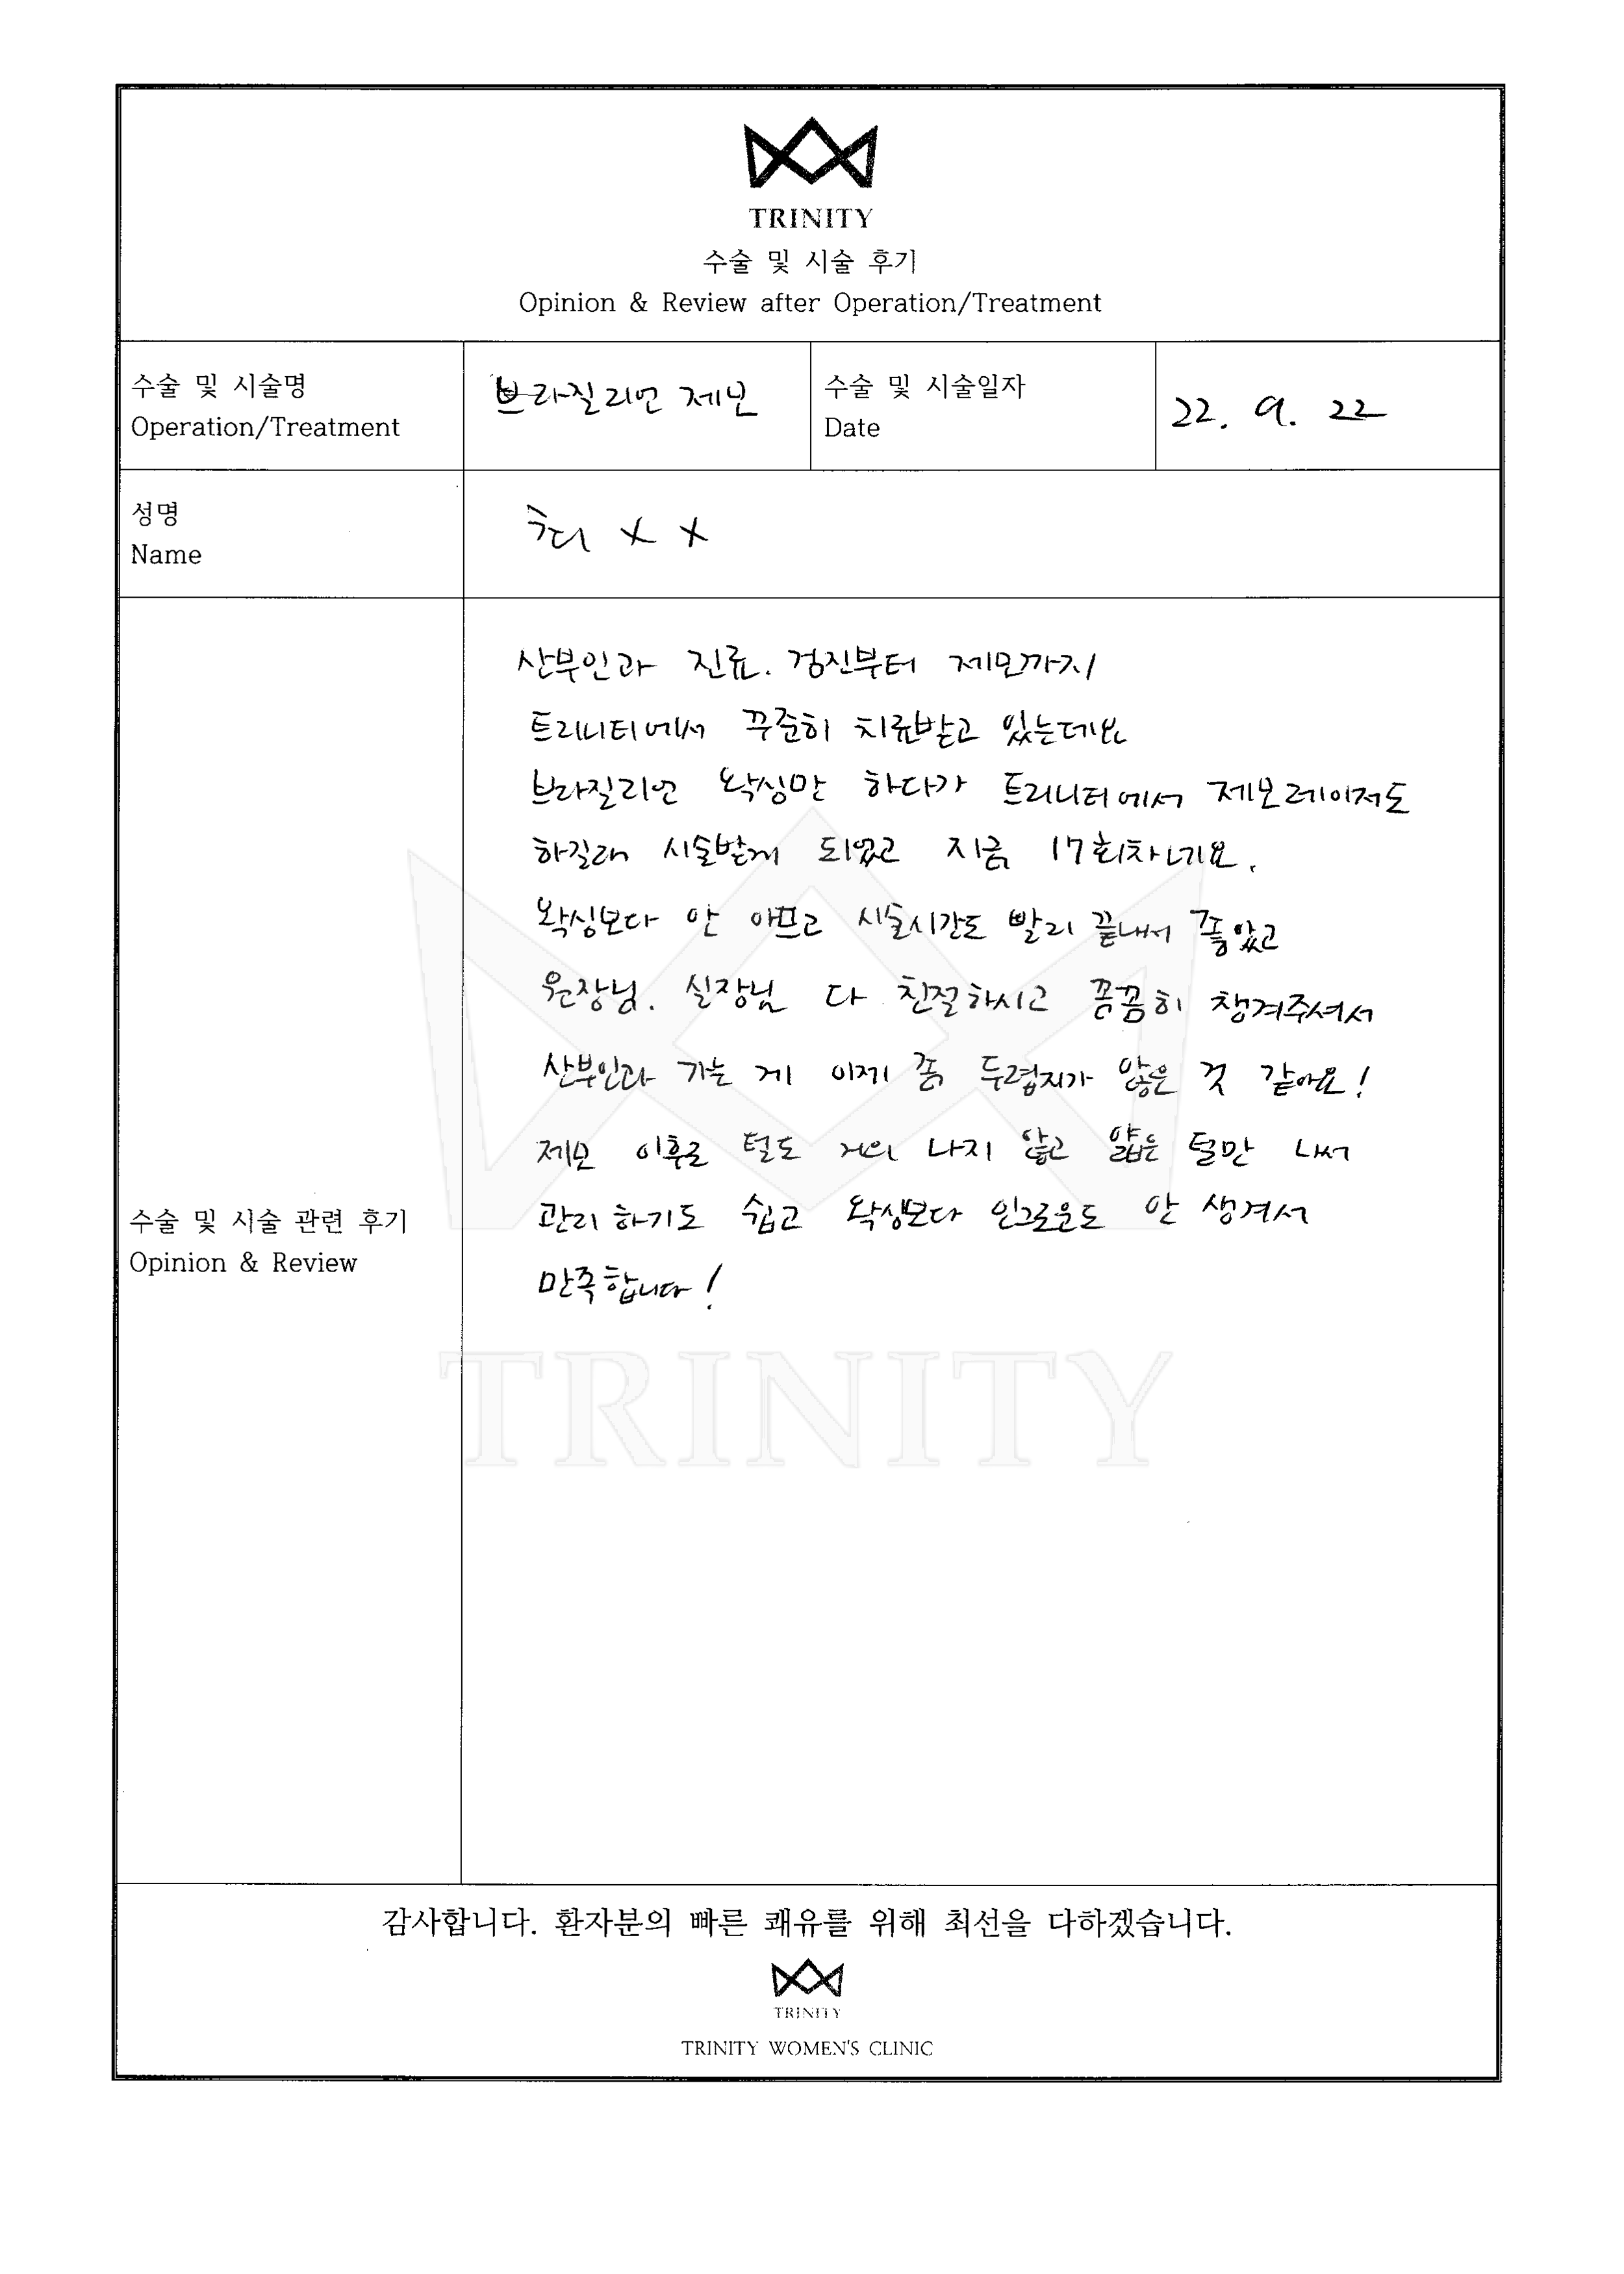 TRINITY
수술 및 시술 후기
Opinion & Review after Operation/Treatment
수술 및 시술명
Operation/Treatment
브라질리언 제모
수술 및 시술일자
Date
22. 9. 22
성명
Name
최 x x
수술 및 시술 관련 후기
Opinion & Review
산부인과 진료. 검진부터 제모까지
트리니티에서 꾸준히 치료받고 있는데요
브라질리언 왁싱만 하다가 트리니티에서 제모레이저도
하길래 시술받게 되었고 지금 17회차네요.
왁싱보다 안 아프고 시술시간도 빨리 끝내서 좋았고
원장님. 실장님 다 친절하시고 꼼꼼히 챙겨주셔서
산부인과 가는 게 이제 좀 두렵지가 않은 것 같아요!
제모 이후로 털도 거의 나지 않고 얇은 털만 나서
관리하기도 쉽고 왁싱보다 인그로운도 안 생겨서
만족합니다!
TRINITY
감사합니다. 환자분의 빠른 쾌유를 위해 최선을 다하겠습니다.
TRINITY
TRINITY WOMEN'S CLINIC